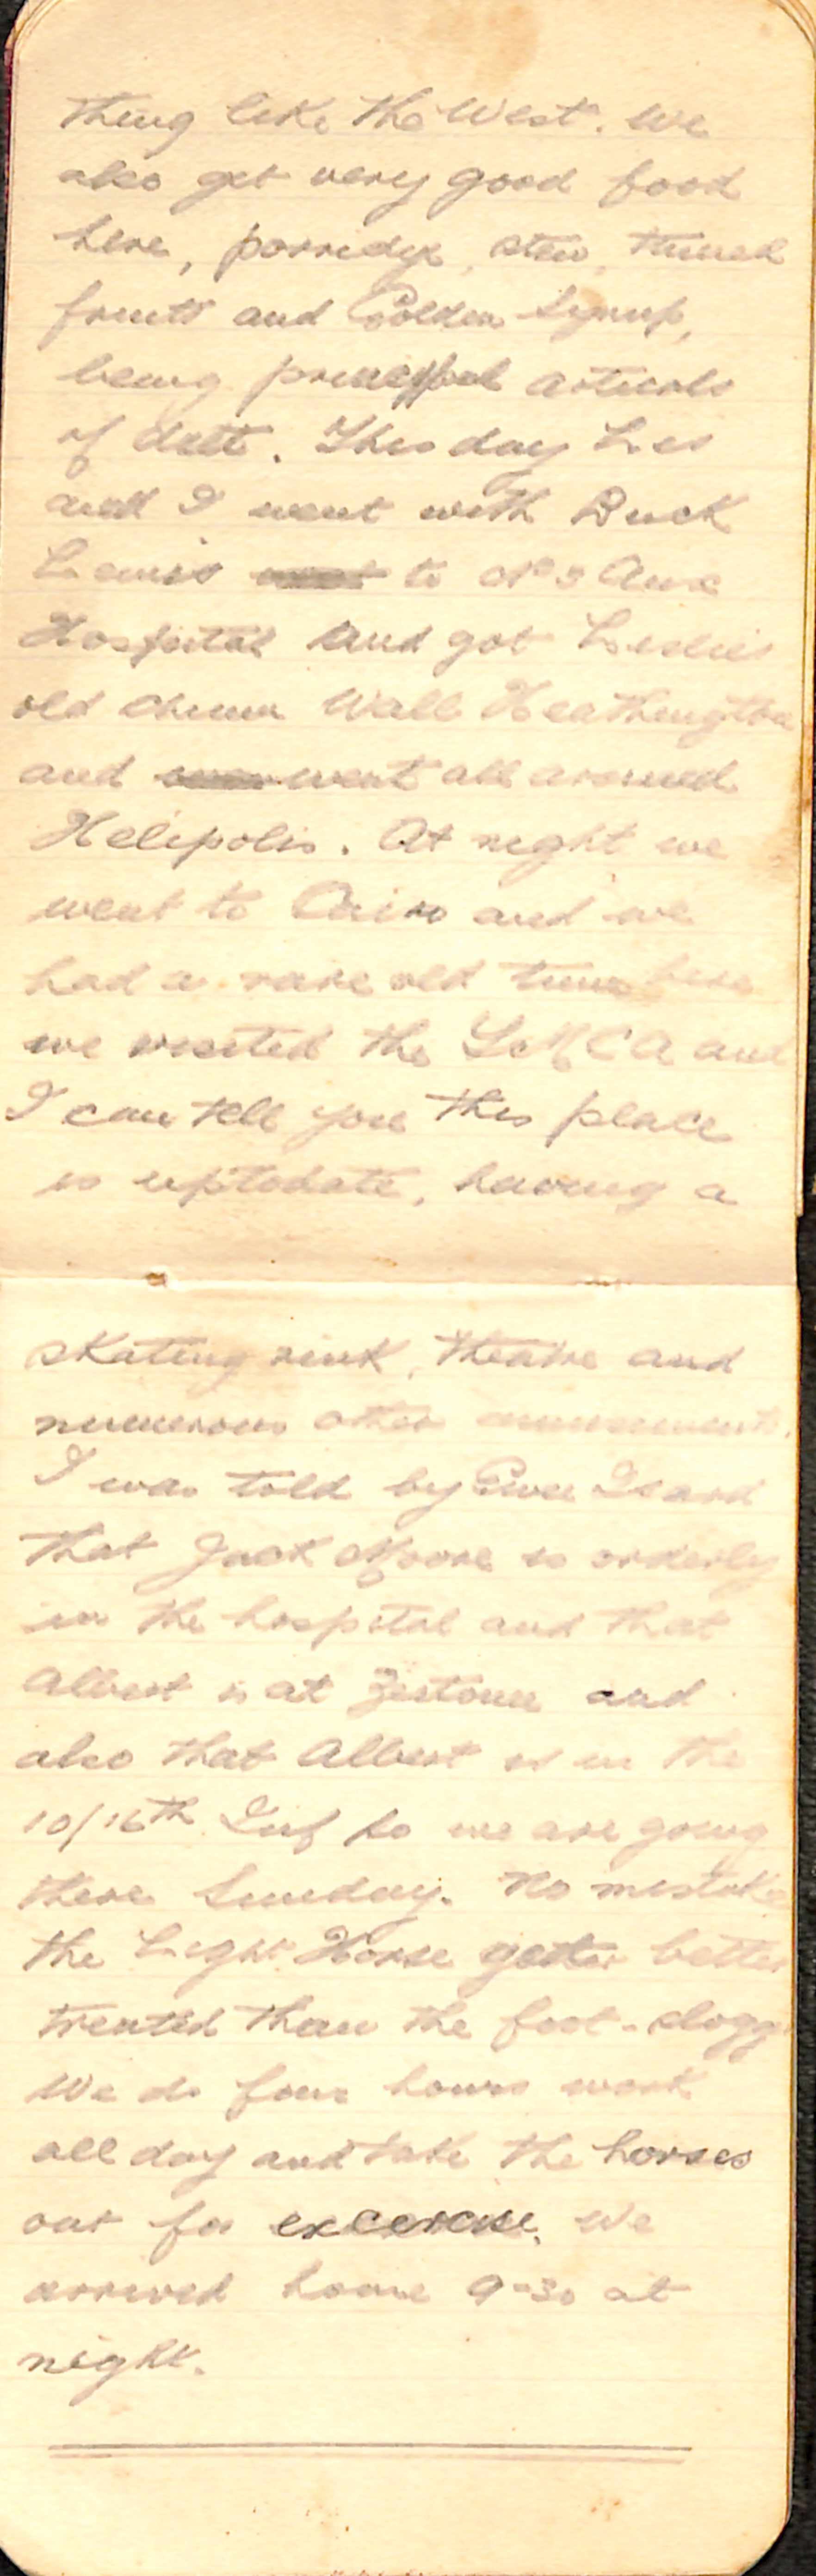 thing like the West. We
also get very good food
here, porridge, stew, tinned
fruits and Golden Syrup,
being principal articals
of diet. This day Les
and I went with Buck
Lewis to No 3 Aux
Hospital and got Leslies
old chum Wall Heathington
and went all around
Helipolis. At night we
went to Cairo and we
had a rare old time here
we visited the YMCA and
I can tell you this place
is uptodate, having a
skating rink, theatre and
numerous other amusements.
I was told by Isard
that Jack Moore is orderly
in the hospital and that
Albert is at Zeitoun and
also that Albert is in the
10/16th Inf so we are going
there Sunday. No mistake
the Light Horse better
treated than the foot-slogg
We do four hours work
all day and take the horses
out for excercise. We
arrived home 9-30 at
night.